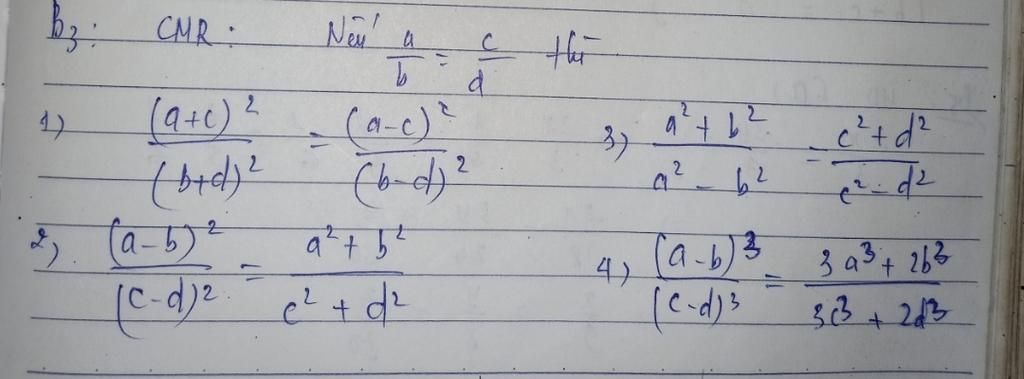 B3: CMR: Nếu a/b = c/d thì
1) (a+c)²/(b+d)² = (a-c)²/(b-d)²
3) (a²+b²)/(a²-b²) = (c²+d²)/(c²-d²)
2) (a-b)²/(c-d)² = (a²+b²)/(c²+d²)
4) (a-b)³/(c-d)³ = (3a³+2b³)/(3c³+2d³)